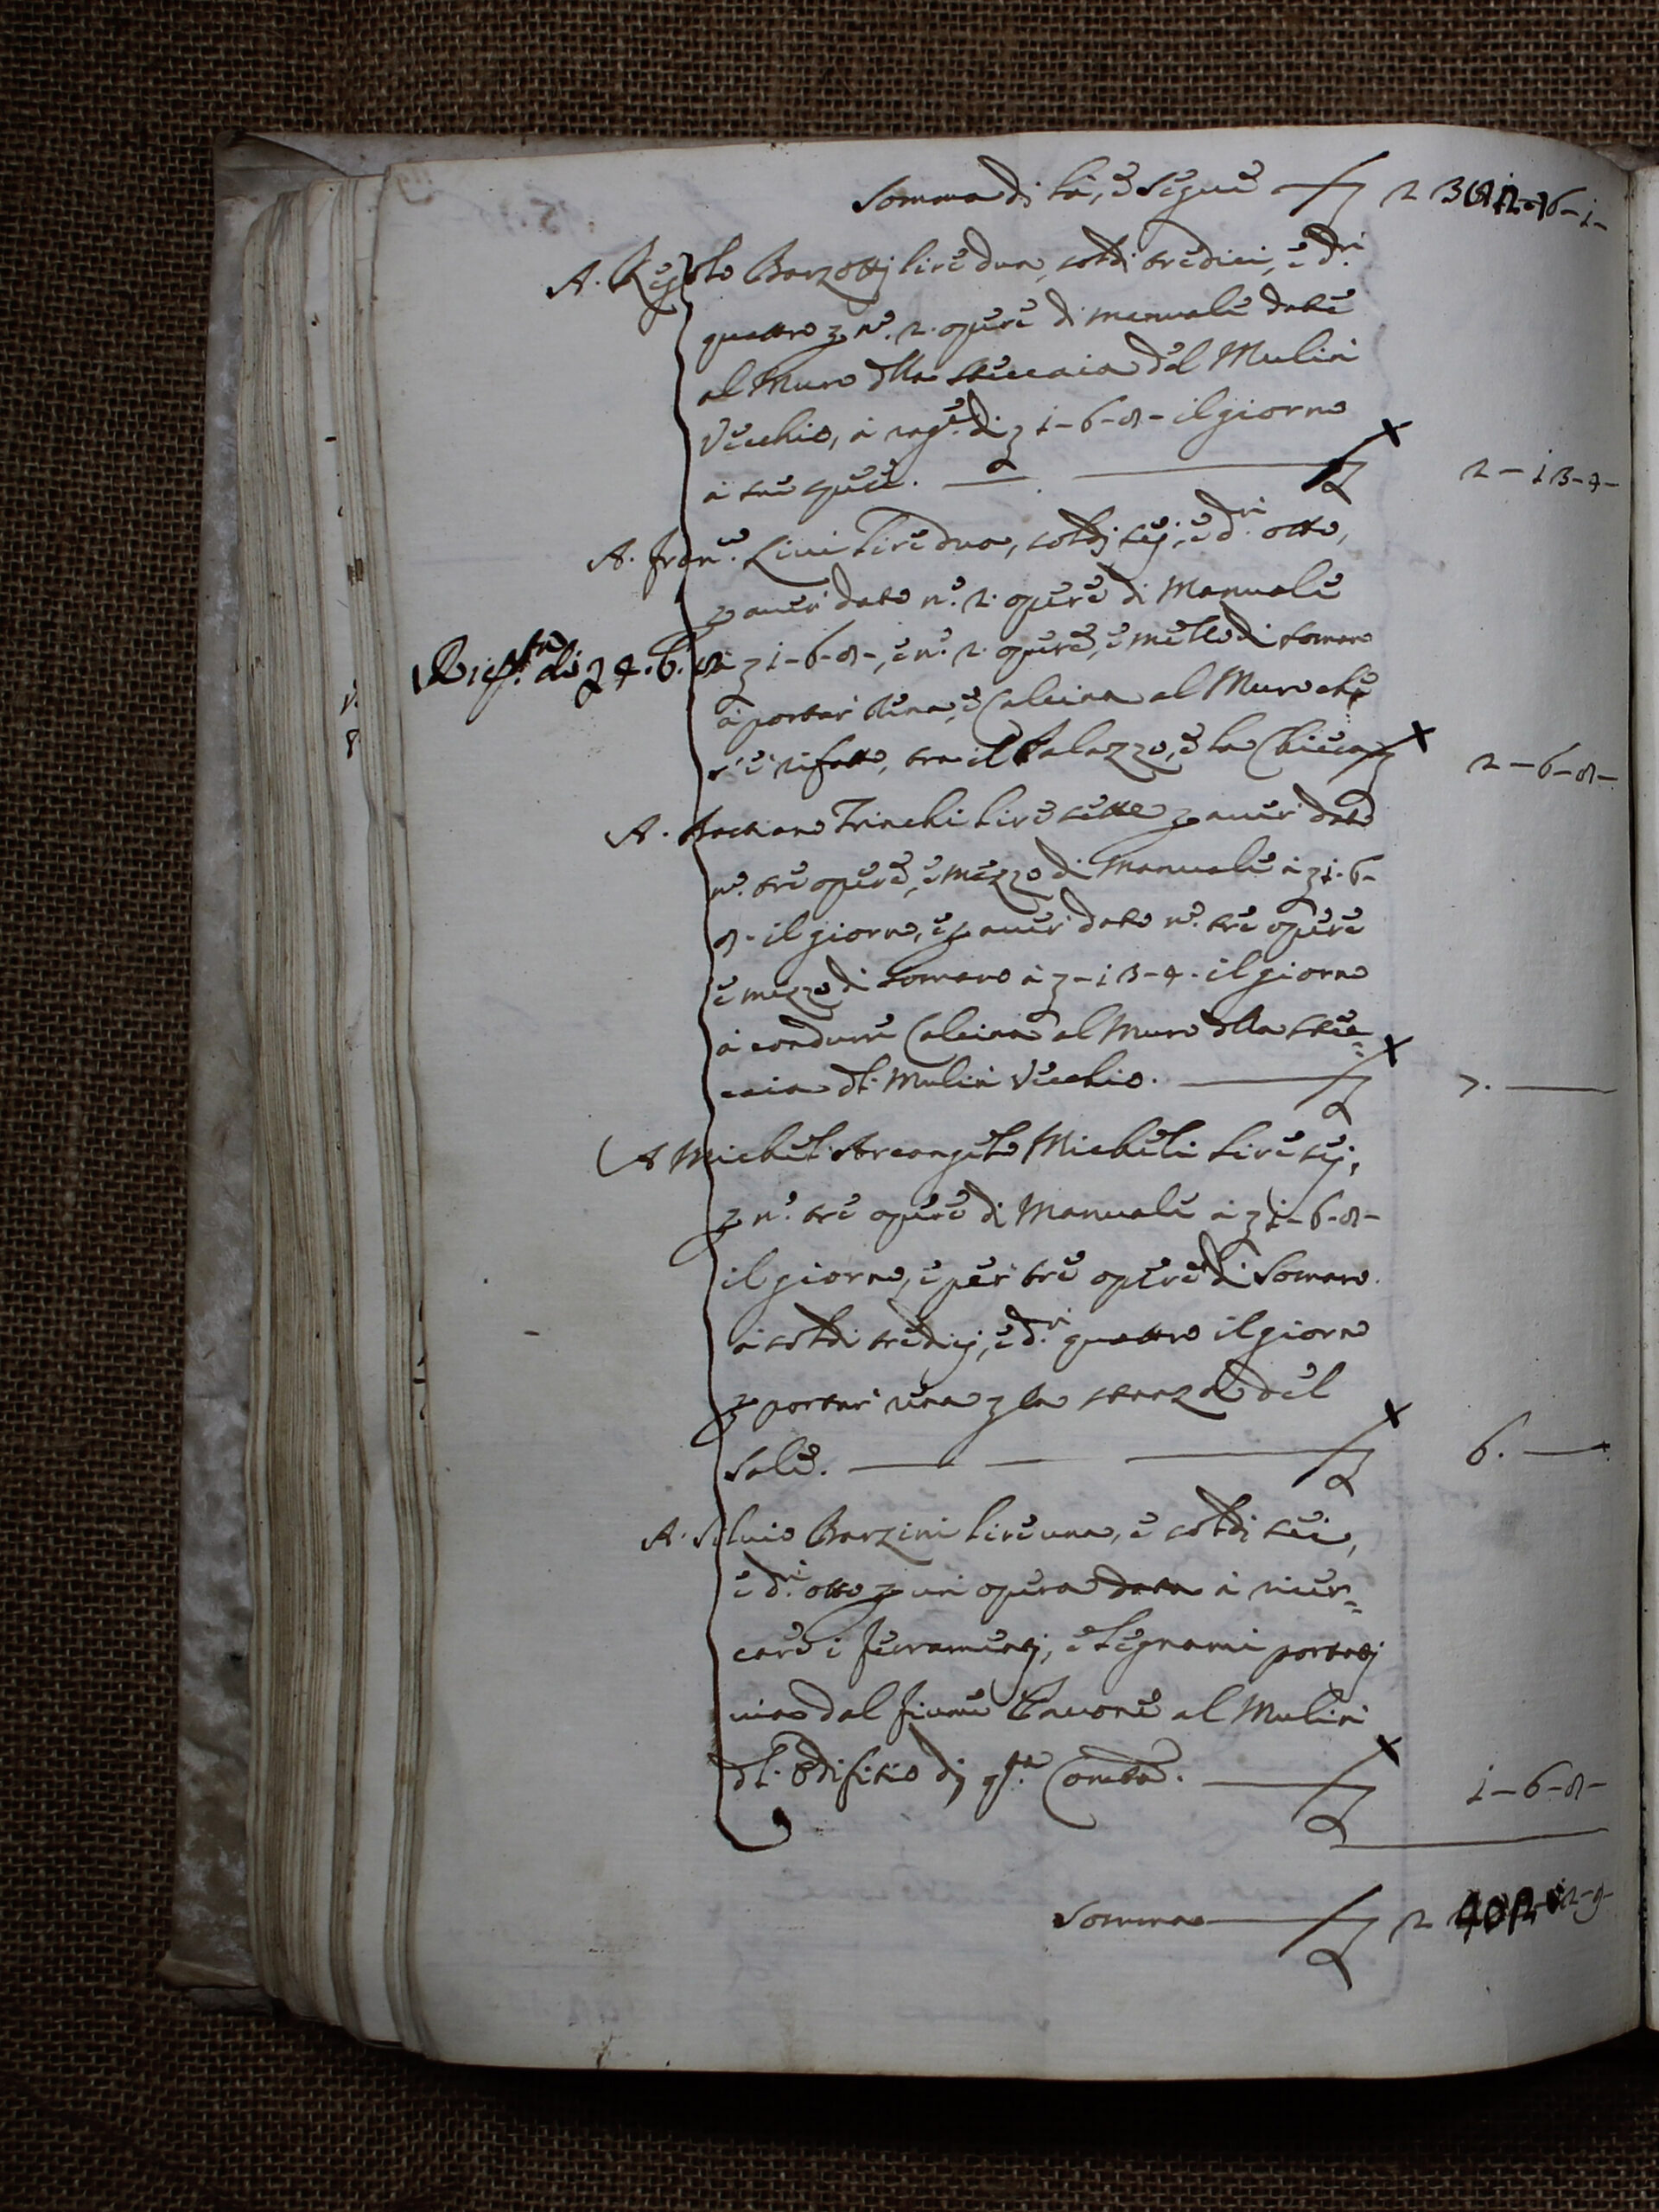 Somma di là, e segue £ 2
A. Regolo Barzottj lire dua, soldi tredici, e d.ri
quattro p n.o 2. opere di manuale date
al Muro dlla steccaia del Mulin
Vecchio, à rag.e di £ 1-6-8- il giorno
à sue spese. £ 2-13-4-
A. Fran.co Lini lire dua, soldj sej, e d.ri otto,
p auer dato n.o 2. opere di Manuale
à £ 1-6-8-, e n.o 2. opere, e mezzo di somaro
à portar rena, e Calcina al Muro che
s'è rifatto, tra il Palazzo, e la Chiesa £ 2-6-8-
A. Trinchi lire sette p auer dato
n.o tre opere, e mezzo di Manuale à £ 1-6-
8- il giorno, e p auer dato n.o tre opere
e mezzo di somaro à £ -13-4. il giorno
à condurre Calcina al Muro dlla stec=
caia dl. Mulin Vecchio. £ 7.
A Michel Arcangelo Micheli lire sej,
p n.o tre opere di Manuale à £ 1-6-8-
il giorno, e per tre opere di Somaro
à soldi tredicj, e d.ri quattro il giorno
p portar rena p la stanza del
Sale. £ 6.
A. Siluio Barzini lire una, e soldi sei,
e d.ri otto p un opera data à ricer=
care i ferramentj, e legnami portatj
uia dal fiume Pauone al Mulin
dl. Edifitio dj q.ta Comtà. £ 1-6-8-
Somma £ 2 402-12-9-